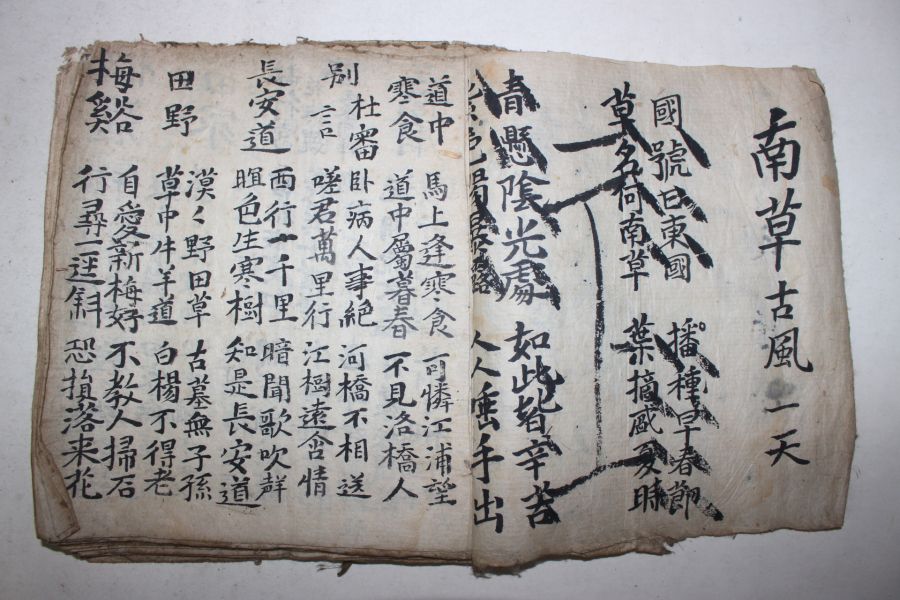 南草古風一天
國號曰東國 播種早春節
草名何南草 葉摘盛夏時
青懸陰光處 如此皆辛苦
人人唾手出
道中 馬上逢寒食 可憐江浦望
寒食 道中屬暮春 不見洛橋人
杜審言 臥病人事絶 河橋不相送
別 嗟君萬里行 江樹遠含情
長安道 西行一千里 暗聞歌吹聲
暝色生寒樹 知是長安道
田野 漠々野田草 古墓無子孫
草中牛羊道 白楊不得老
梅谿 自愛新梅好 不教人掃石
行尋一逕斜 恐損落来花